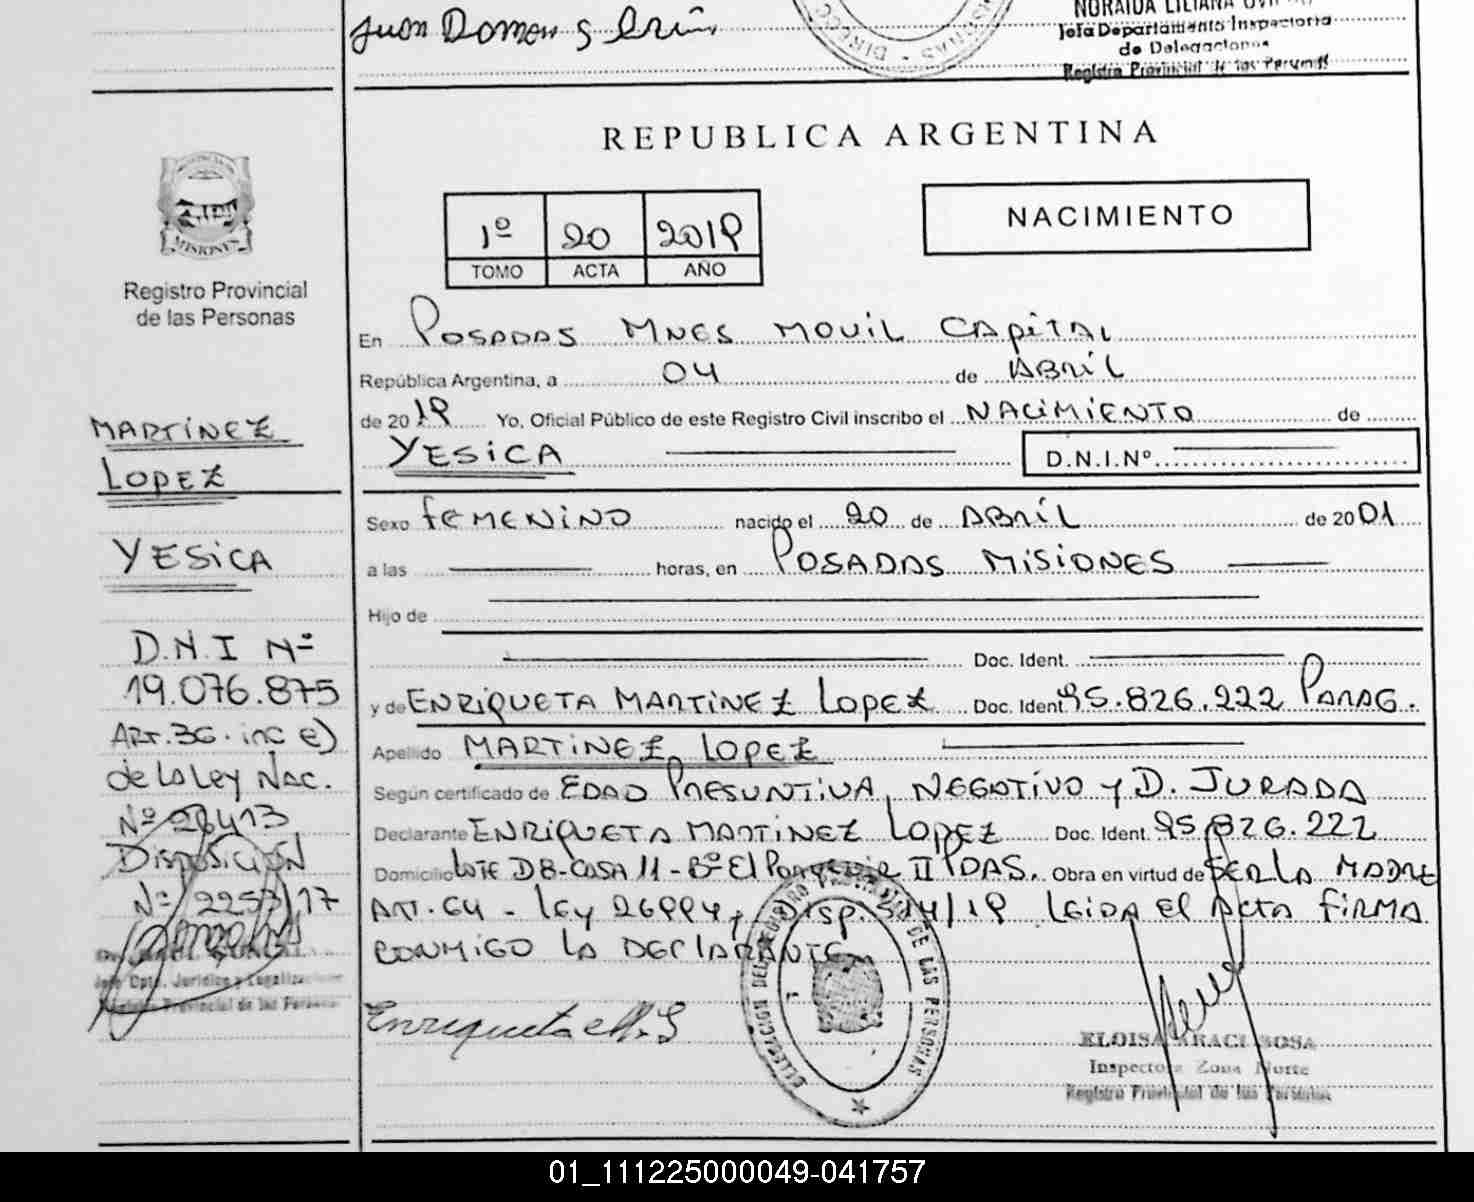 Juan Domon
NORAIDA LILIANA
Jefa Departamento Inspectoría
de Delegaciones
Registro Provincial de las Personas
REPUBLICA ARGENTINA
1º 20 2019
TOMO ACTA AÑO
NACIMIENTO
MISIONES
Registro Provincial
de las Personas
En POSADAS MNES MOVIL CAPITAL
República Argentina, a 04 de ABRIL
de 2019 Yo, Oficial Público de este Registro Civil inscribo el NACIMIENTO de
YESICA D.N.I.Nº
Sexo FEMENINO nacido el 20 de ABRIL de 2001
a las horas, en POSADAS MISIONES
Hijo de
Doc. Ident.
y de ENRIQUETA MARTINEZ LOPEZ Doc. Ident 95.826.222 PARAG.
Apellido MARTINEZ LOPEZ
Según certificado de EDAD PRESUNTIVA, NEGATIVO Y D. JURADA
Declarante ENRIQUETA MARTINEZ LOPEZ Doc. Ident. 95.826.222
Domicilio LOTE D8-CASA 11-Bº El II PDAS. Obra en virtud de SER LA MADRE
ART. 64 - LEY 26994, DISP. /19 LEIDA EL ACTA FIRMA
CONMIGO LA DECLARANTE
Enriqueta
DELEGACION DEL REGISTRO DE LAS PERSONAS
ELOISA ARACI SOSA
Inspectora Zona Norte
Registro Provincial de las Personas
MARTINEZ
LOPEZ
YESICA
D.N.I Nº
19.076.875
ART.36.inc e)
de la Ley Nac.
Nº 26413
DISPOSICIÓN
Nº 2253/17
Jefe Dpto. Jurídico y Legalizaciones
Registro Provincial de las Personas
01_111225000049-041757